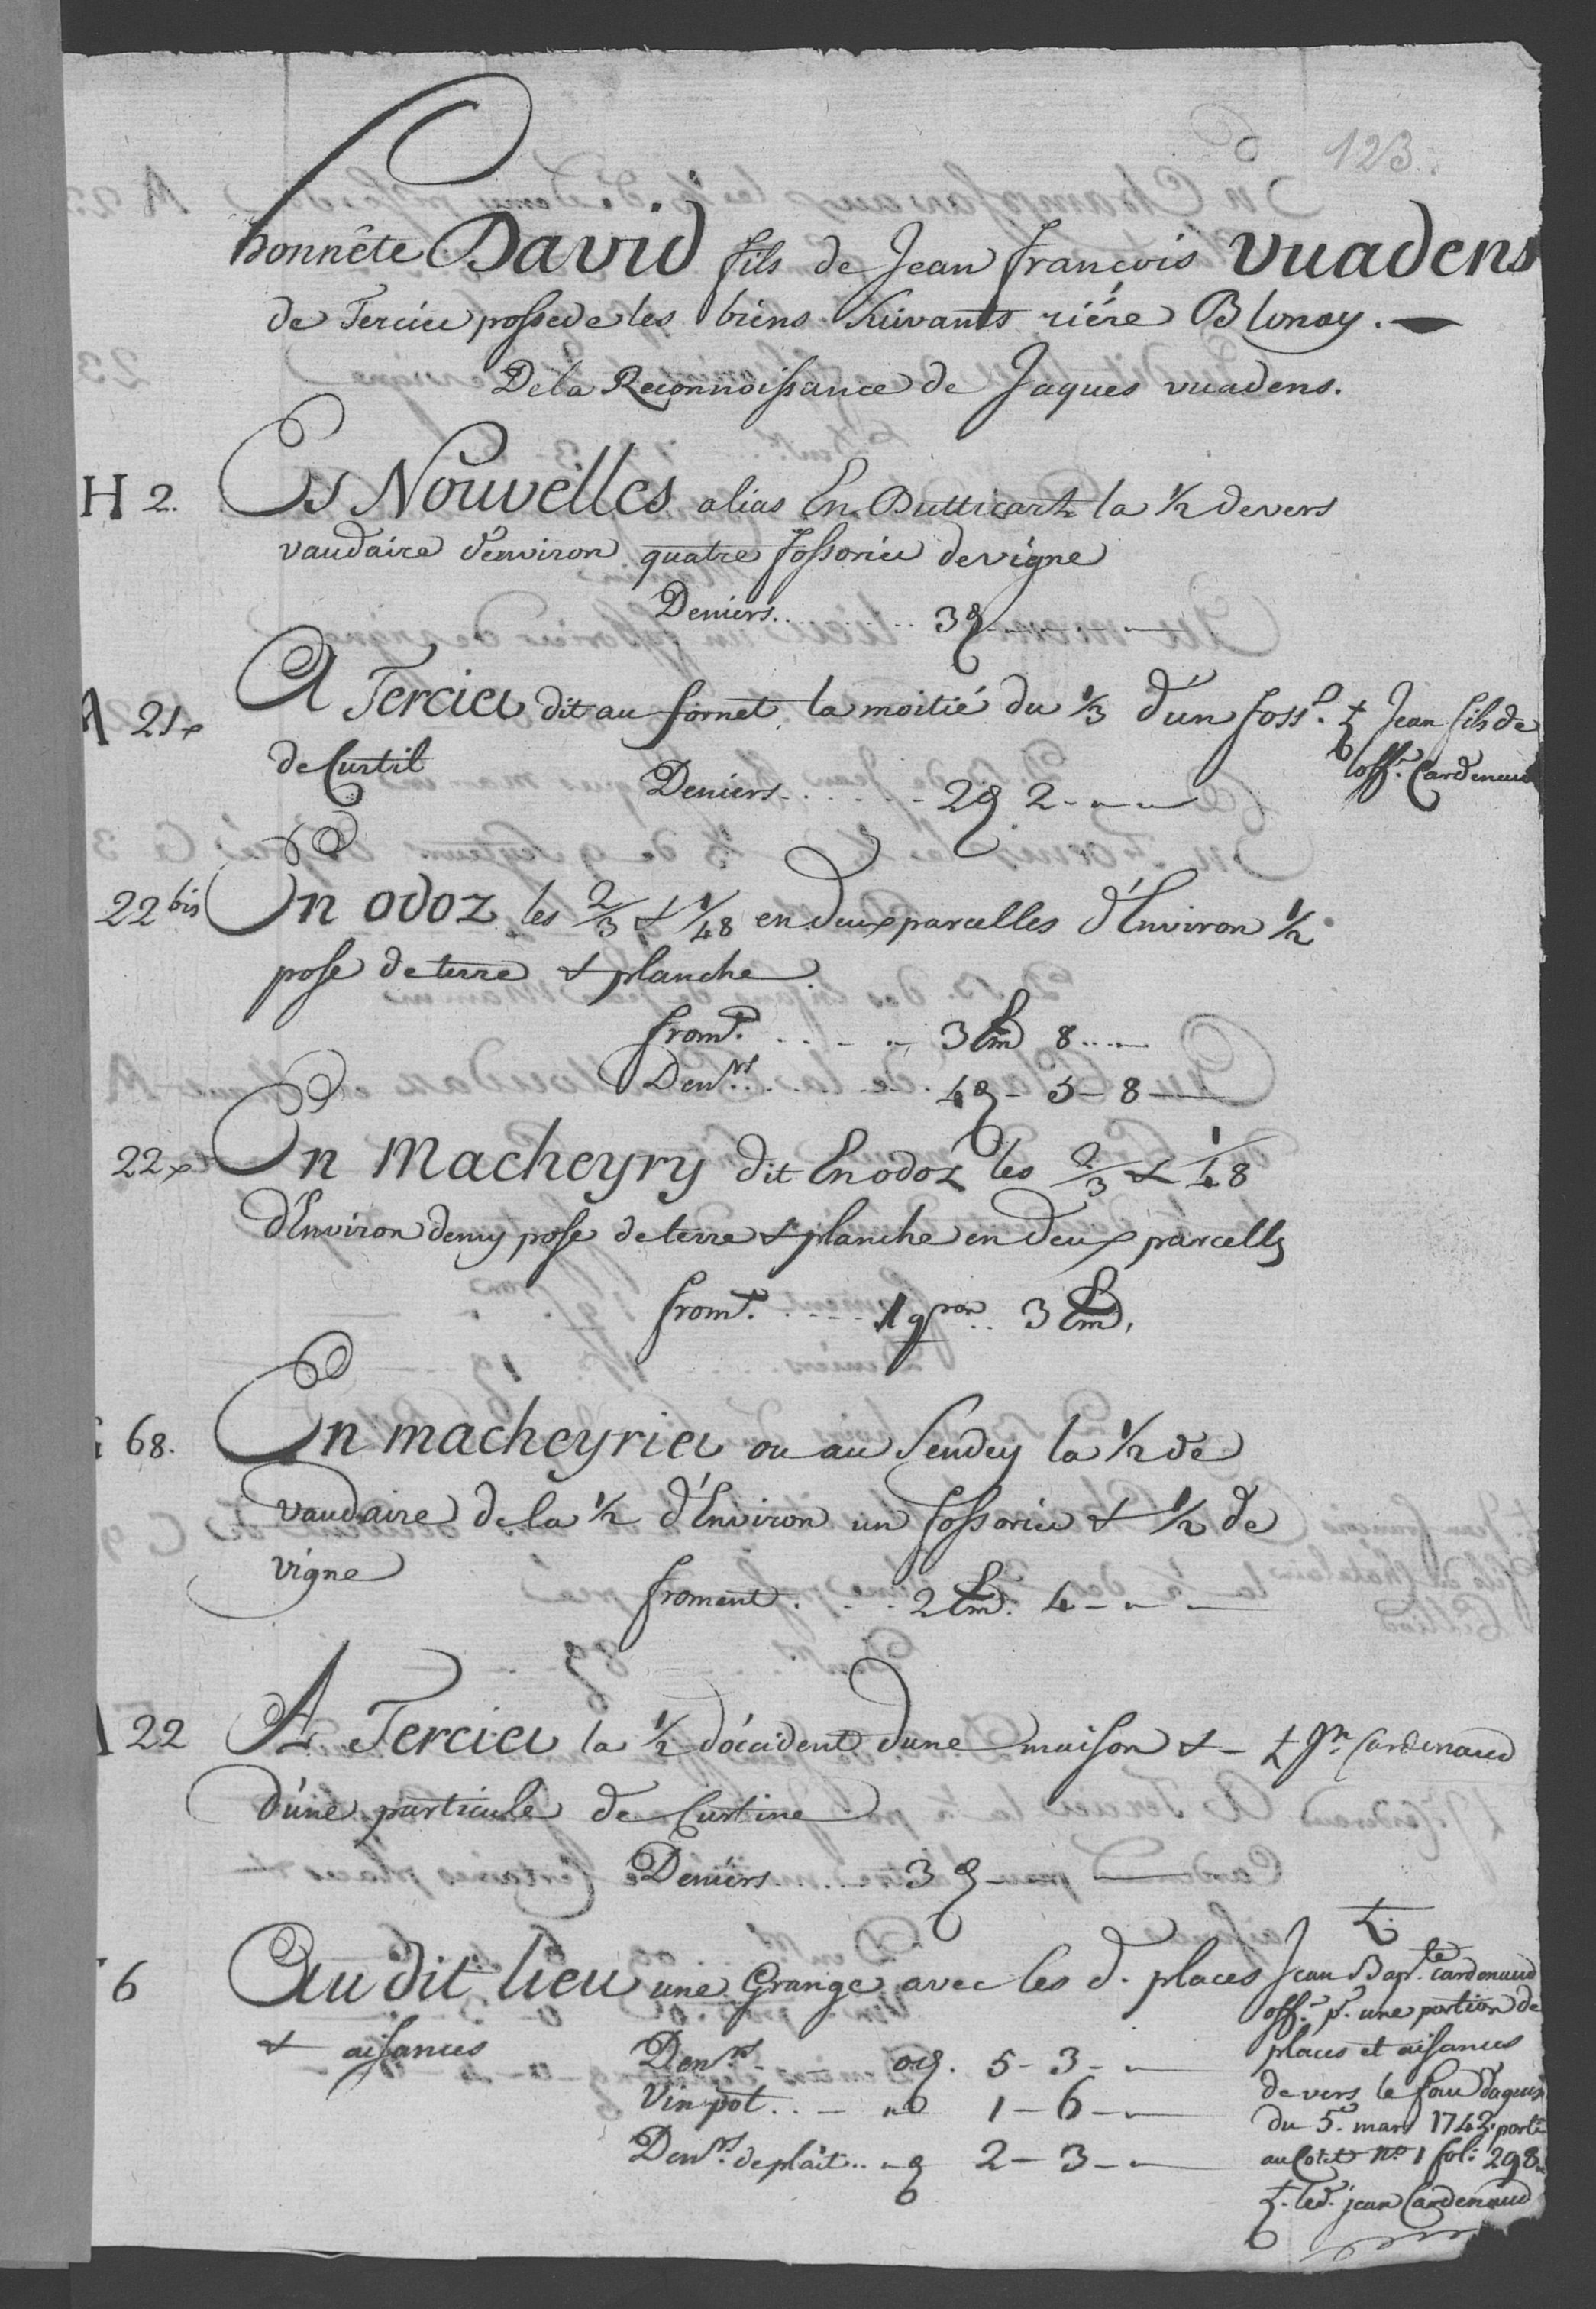 123.
honnête David fils de Jean françois Vuadens
de Tercier possede les biens suivants riére Blonay.
De la Reconnoissance de Jaques vuadens.
H 2. Es Nouvelles alias En Butticart la 1/2 devers
vaudaire d'environ quatre fossorier de vigne
Deniers 3 ʒ
A 21 A Tercier dit au fornet, la moitié du 1/3 d'un foss.r
de Curtil
Deniers 2 ʒ 2
Jean fils de
l'off.r Cardenaud
22 bis En odoz les 2/3 & 1/48 en deux parcelles d'Environ 1/2
pose de terre & planche
from.t 3 Em 8
Den.rs 4 ʒ - 5 - 8
22 En Macheyry dit En odoz les 2/3 & 1/48
d'Environ demy pose de terre & planche en deux parcelles
from.t 1 q.ron 3 Em.
68. En macheyrier ou au Sendey la 1/2 de
vaudaire de la 1/2 d'Environ un fossorier & 1/2 de
vigne
froment 2 Em. 4
A 22 A Tercier la 1/2 d'occident d'une maison &
d'une particule de Curtine
Deniers 3 ʒ
Cardenaud
6 Au dit lieu une Grange avec les d. places
& aisances
Den.rs 0 ʒ. 5 - 3
Vin pot 1 - 6
Den.rs de plait 2 - 3
Jean Bap.te Cardenaud
off.r p.r une portion de
places et aisances
devers le four
du 5.e mars 1742. porté
au Cotet N.o 1 fol: 298
le d. jean Cardenaud